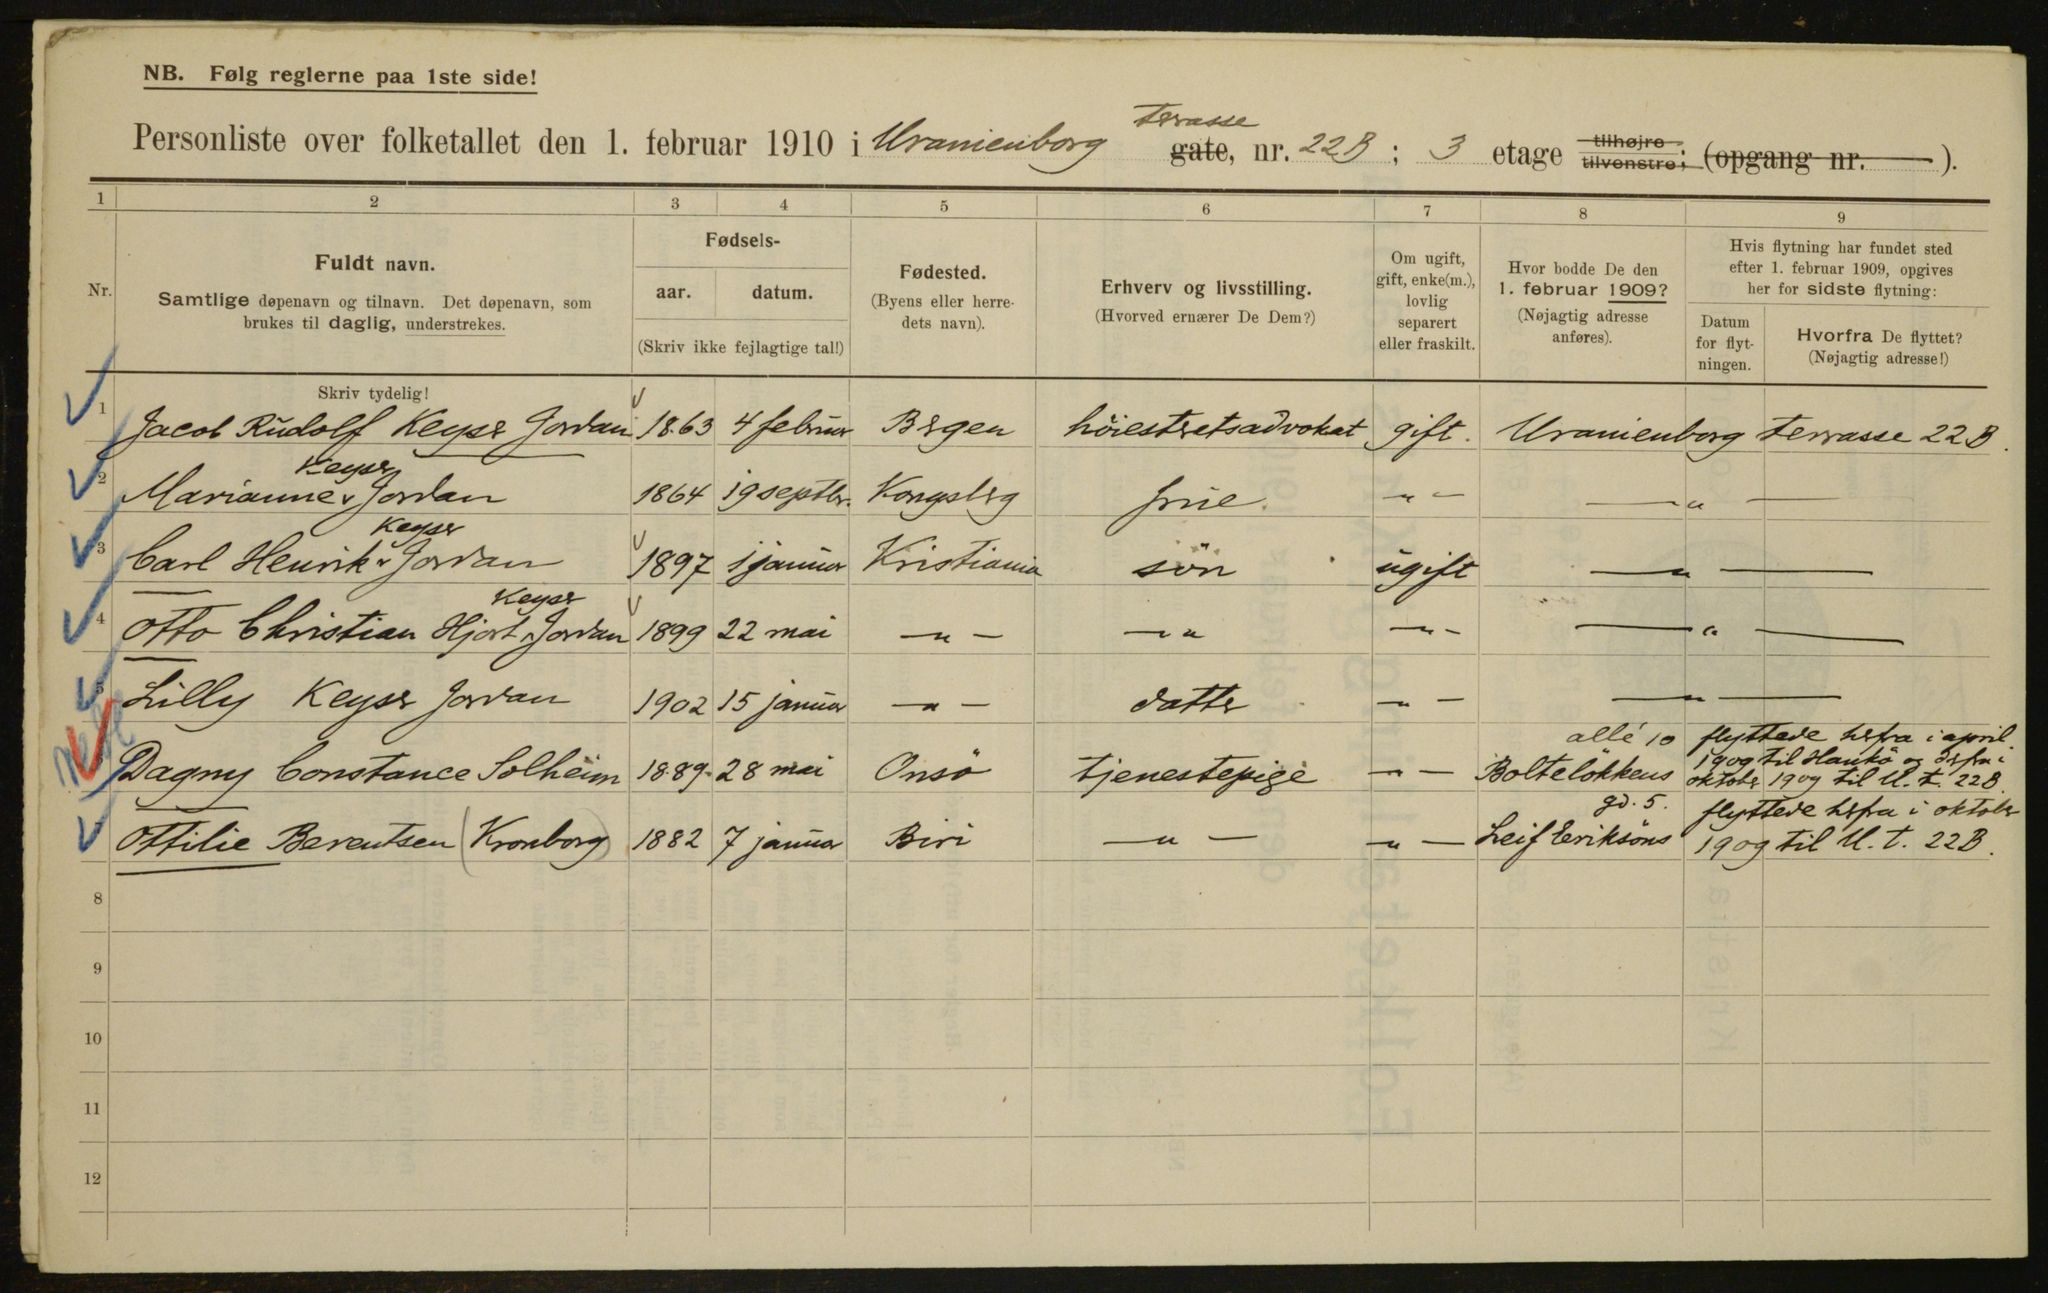 NB. Følg reglerne paa 1ste side!
Personliste over folketallet den 1. februar 1910 i Uranienborg terrasse gate, nr. 22B ; 3 etage tilhøjre tilvenstre; (opgang nr. ).
1 2 3 4 5 6 7 8 9
Nr.
Fuldt navn.
Samtlige døpenavn og tilnavn. Det døpenavn, som
brukes til daglig, understrekes.
Fødsels-
aar. datum.
(Skriv ikke fejlagtige tal!)
Fødested.
(Byens eller herre-
dets navn).
Erhverv og livsstilling.
(Hvorved ernærer De Dem?)
Om ugift,
gift, enke(m.),
lovlig
separert
eller fraskilt.
Hvor bodde De den
1. februar 1909?
(Nøjagtig adresse
anføres).
Hvis flytning har fundet sted
efter 1. februar 1909, opgives
her for sidste flytning:
Datum
for flyt-
ningen.
Hvorfra De flyttet?
(Nøjagtig adresse!)
Skriv tydelig!
1 Jacob Rudolf Keyser Jordan 1863 4 februar Bergen höiesteretsadvokat gift. Uranienborg terrasse 22B.
Keyser
2 Marianne Jordan 1864 19 septbr. Kongsberg frue " — — " —
Keyser
3 Carl Henrik Jordan 1897 1 januar Kristiania sön ugift — " —
Keyser
4 Otto Christian Hjort Jordan 1899 22 mai — " — — " — " — — " —
5 Lilly Keyser Jordan 1902 15 januar — " — datter — " — — " —
allé 10 flyttede herfra i april
1909 til Hankö og derfra i
Dagny Constance Solheim 1889 28 mai Onsö tjenestepige — " — Bolteløkkens oktober 1909 til U. t. 22B.
gd. 5. flyttede herfra i oktober
Ottilie Berentsen (Kronborg) 1882 7 januar Biri — " — — " — Leif Eriksöns 1909 til U. t. 22B.
8
9
10
11
12